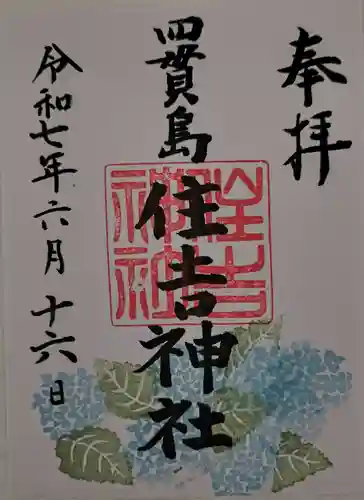 奉拝
四貫島
住吉神社
住吉
神社
令和七年六月十六日